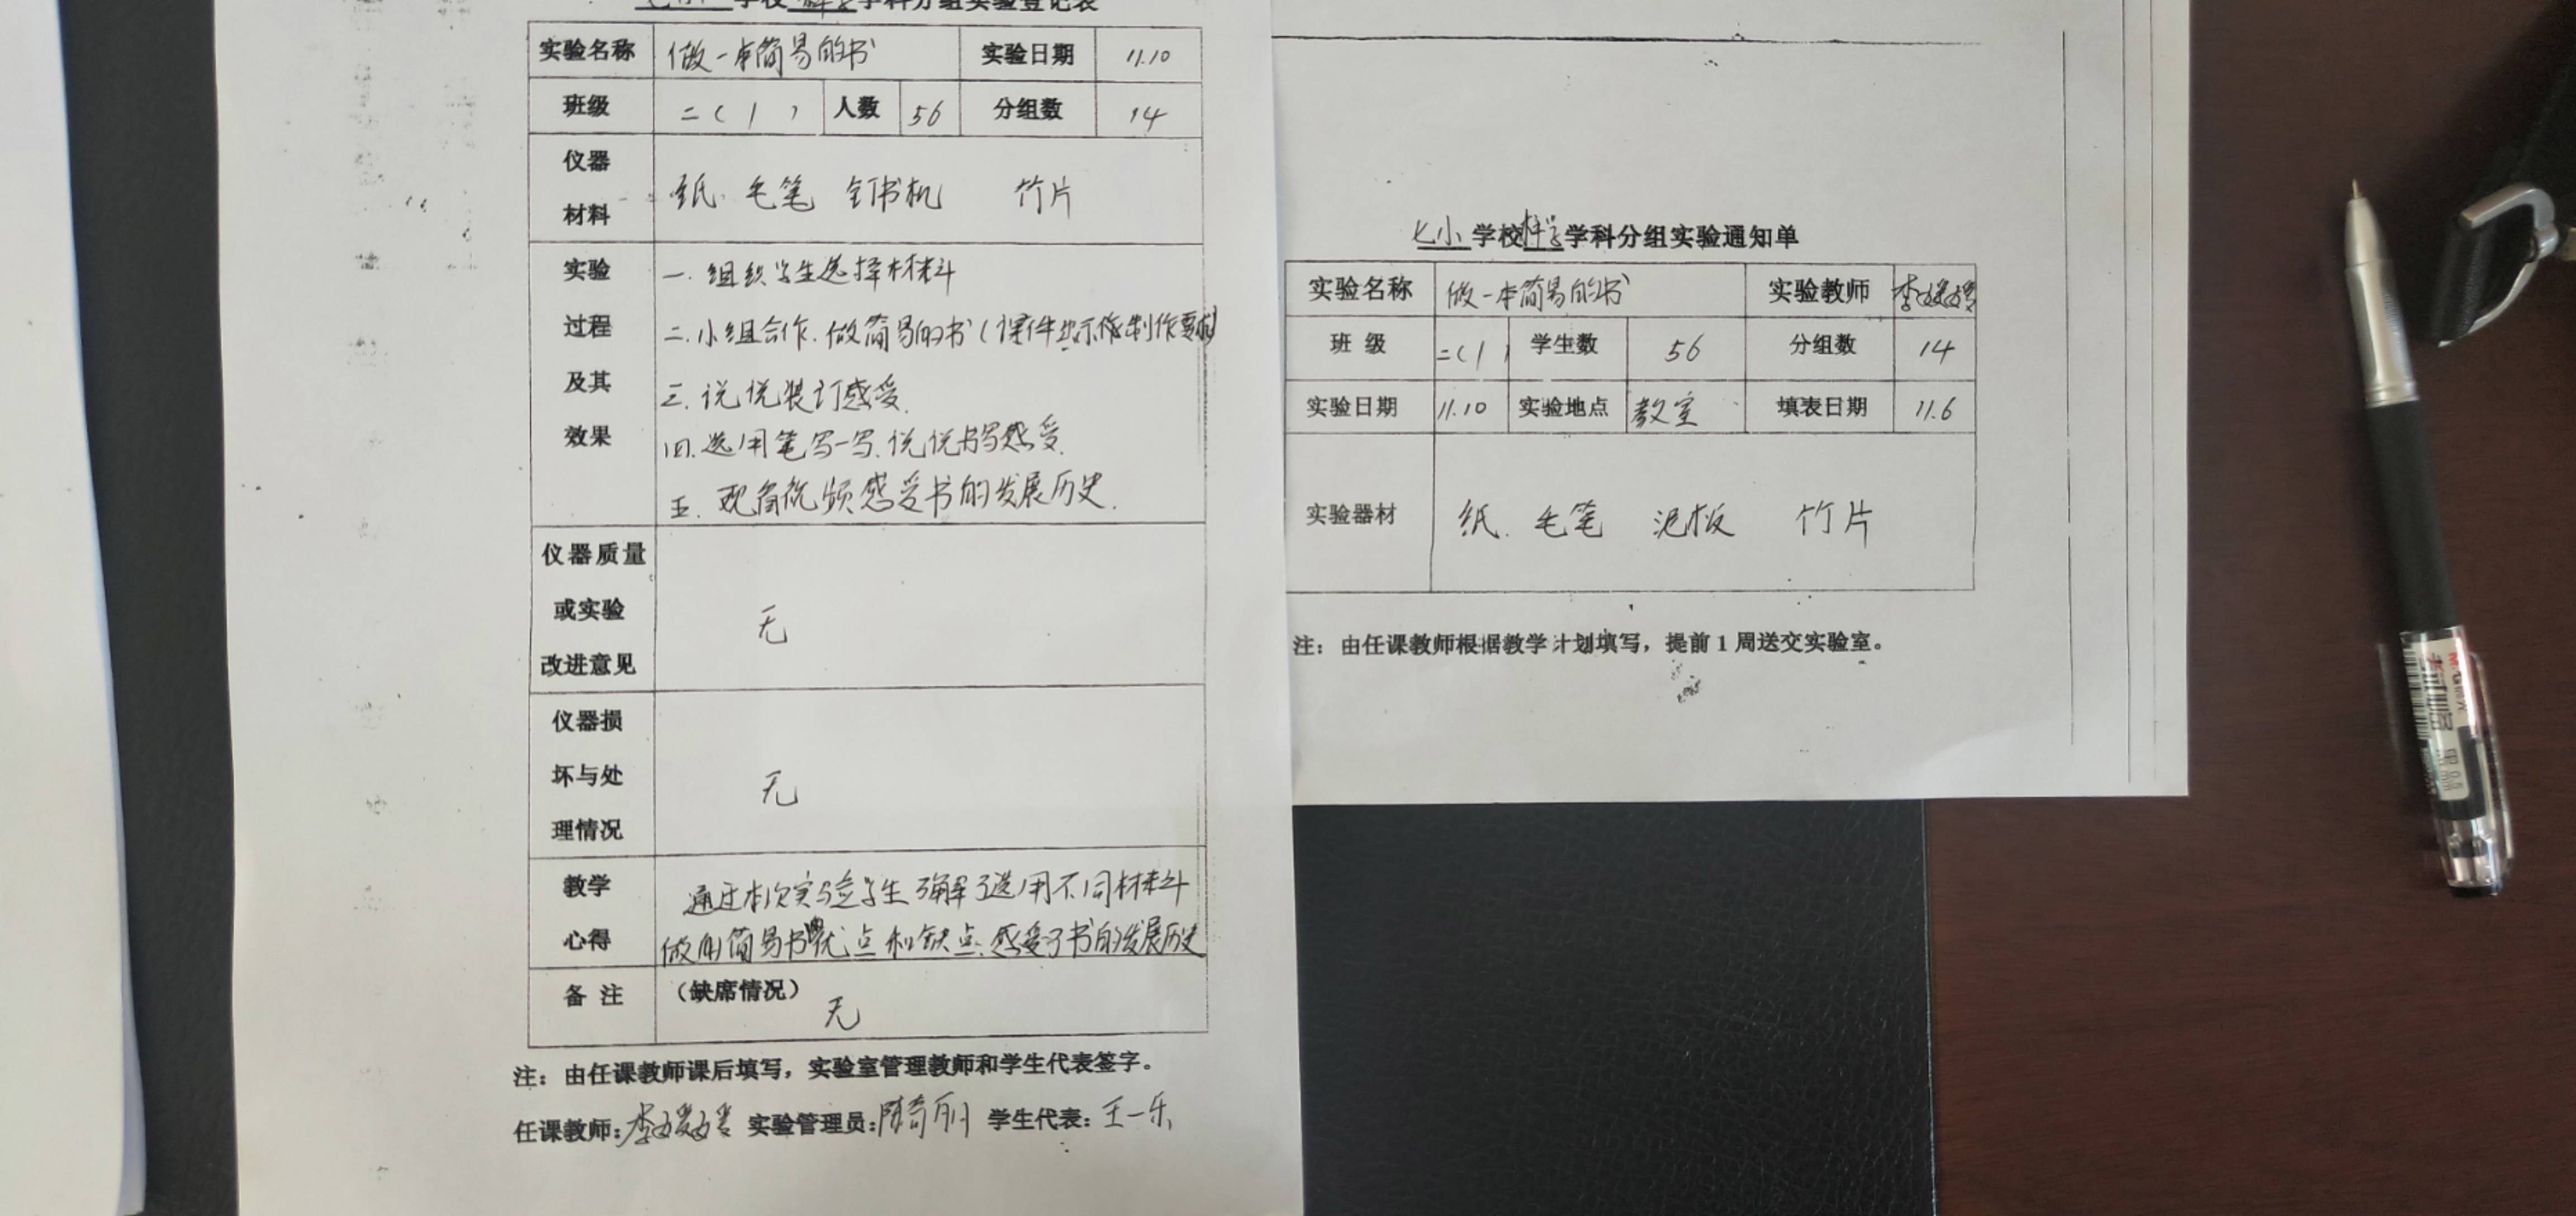 七小 学校 科学 学科分组实验登记表
实验名称 做一本简易的书 实验日期 11.10
班级 二(1) 人数 56 分组数 14
仪器
材料
纸 毛笔 钉书机 竹片
实验
过程
及其
效果
一. 组织学生选择材料
二. 小组合作. 做简易的书(课件出示修制作要求)
三. 说说装订感受.
四. 选用笔写一写. 说说书写感受.
五. 观看视频感受书的发展历史.
仪器质量
或实验
改进意见
无
仪器损
坏与处
理情况
无
教学
心得
通过本次实验学生了解了选用不同材料
做的简易书的优点和缺点. 感受了书的发展历史
备 注 (缺席情况)
无
注：由任课教师课后填写，实验室管理教师和学生代表签字。
任课教师: 李 实验管理员: 陈奇丽 学生代表: 王一乐
七小 学校 科学 学科分组实验通知单
实验名称 做一本简易的书 实验教师 李
班 级 二(1) 学生数 56 分组数 14
实验日期 11.10 实验地点 教室 填表日期 11.6
实验器材 纸. 毛笔 泥板 竹片
注：由任课教师根据教学计划填写，提前1周送交实验室。